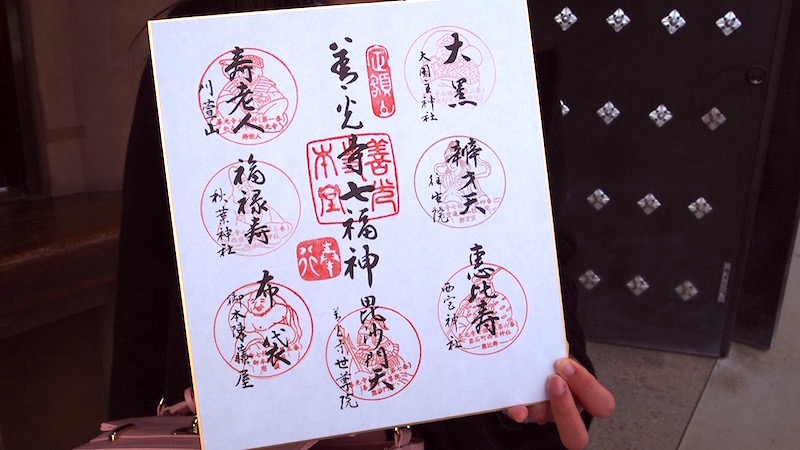 定額山
善光寺七福神
善光寺本堂
大黒
大国主神社
辨才天
往生院
恵比寿
西宮神社
毘沙門天
善光寺世尊院
寿老人
刈萱山
福禄寿
秋葉神社
布袋
御本陳藤屋